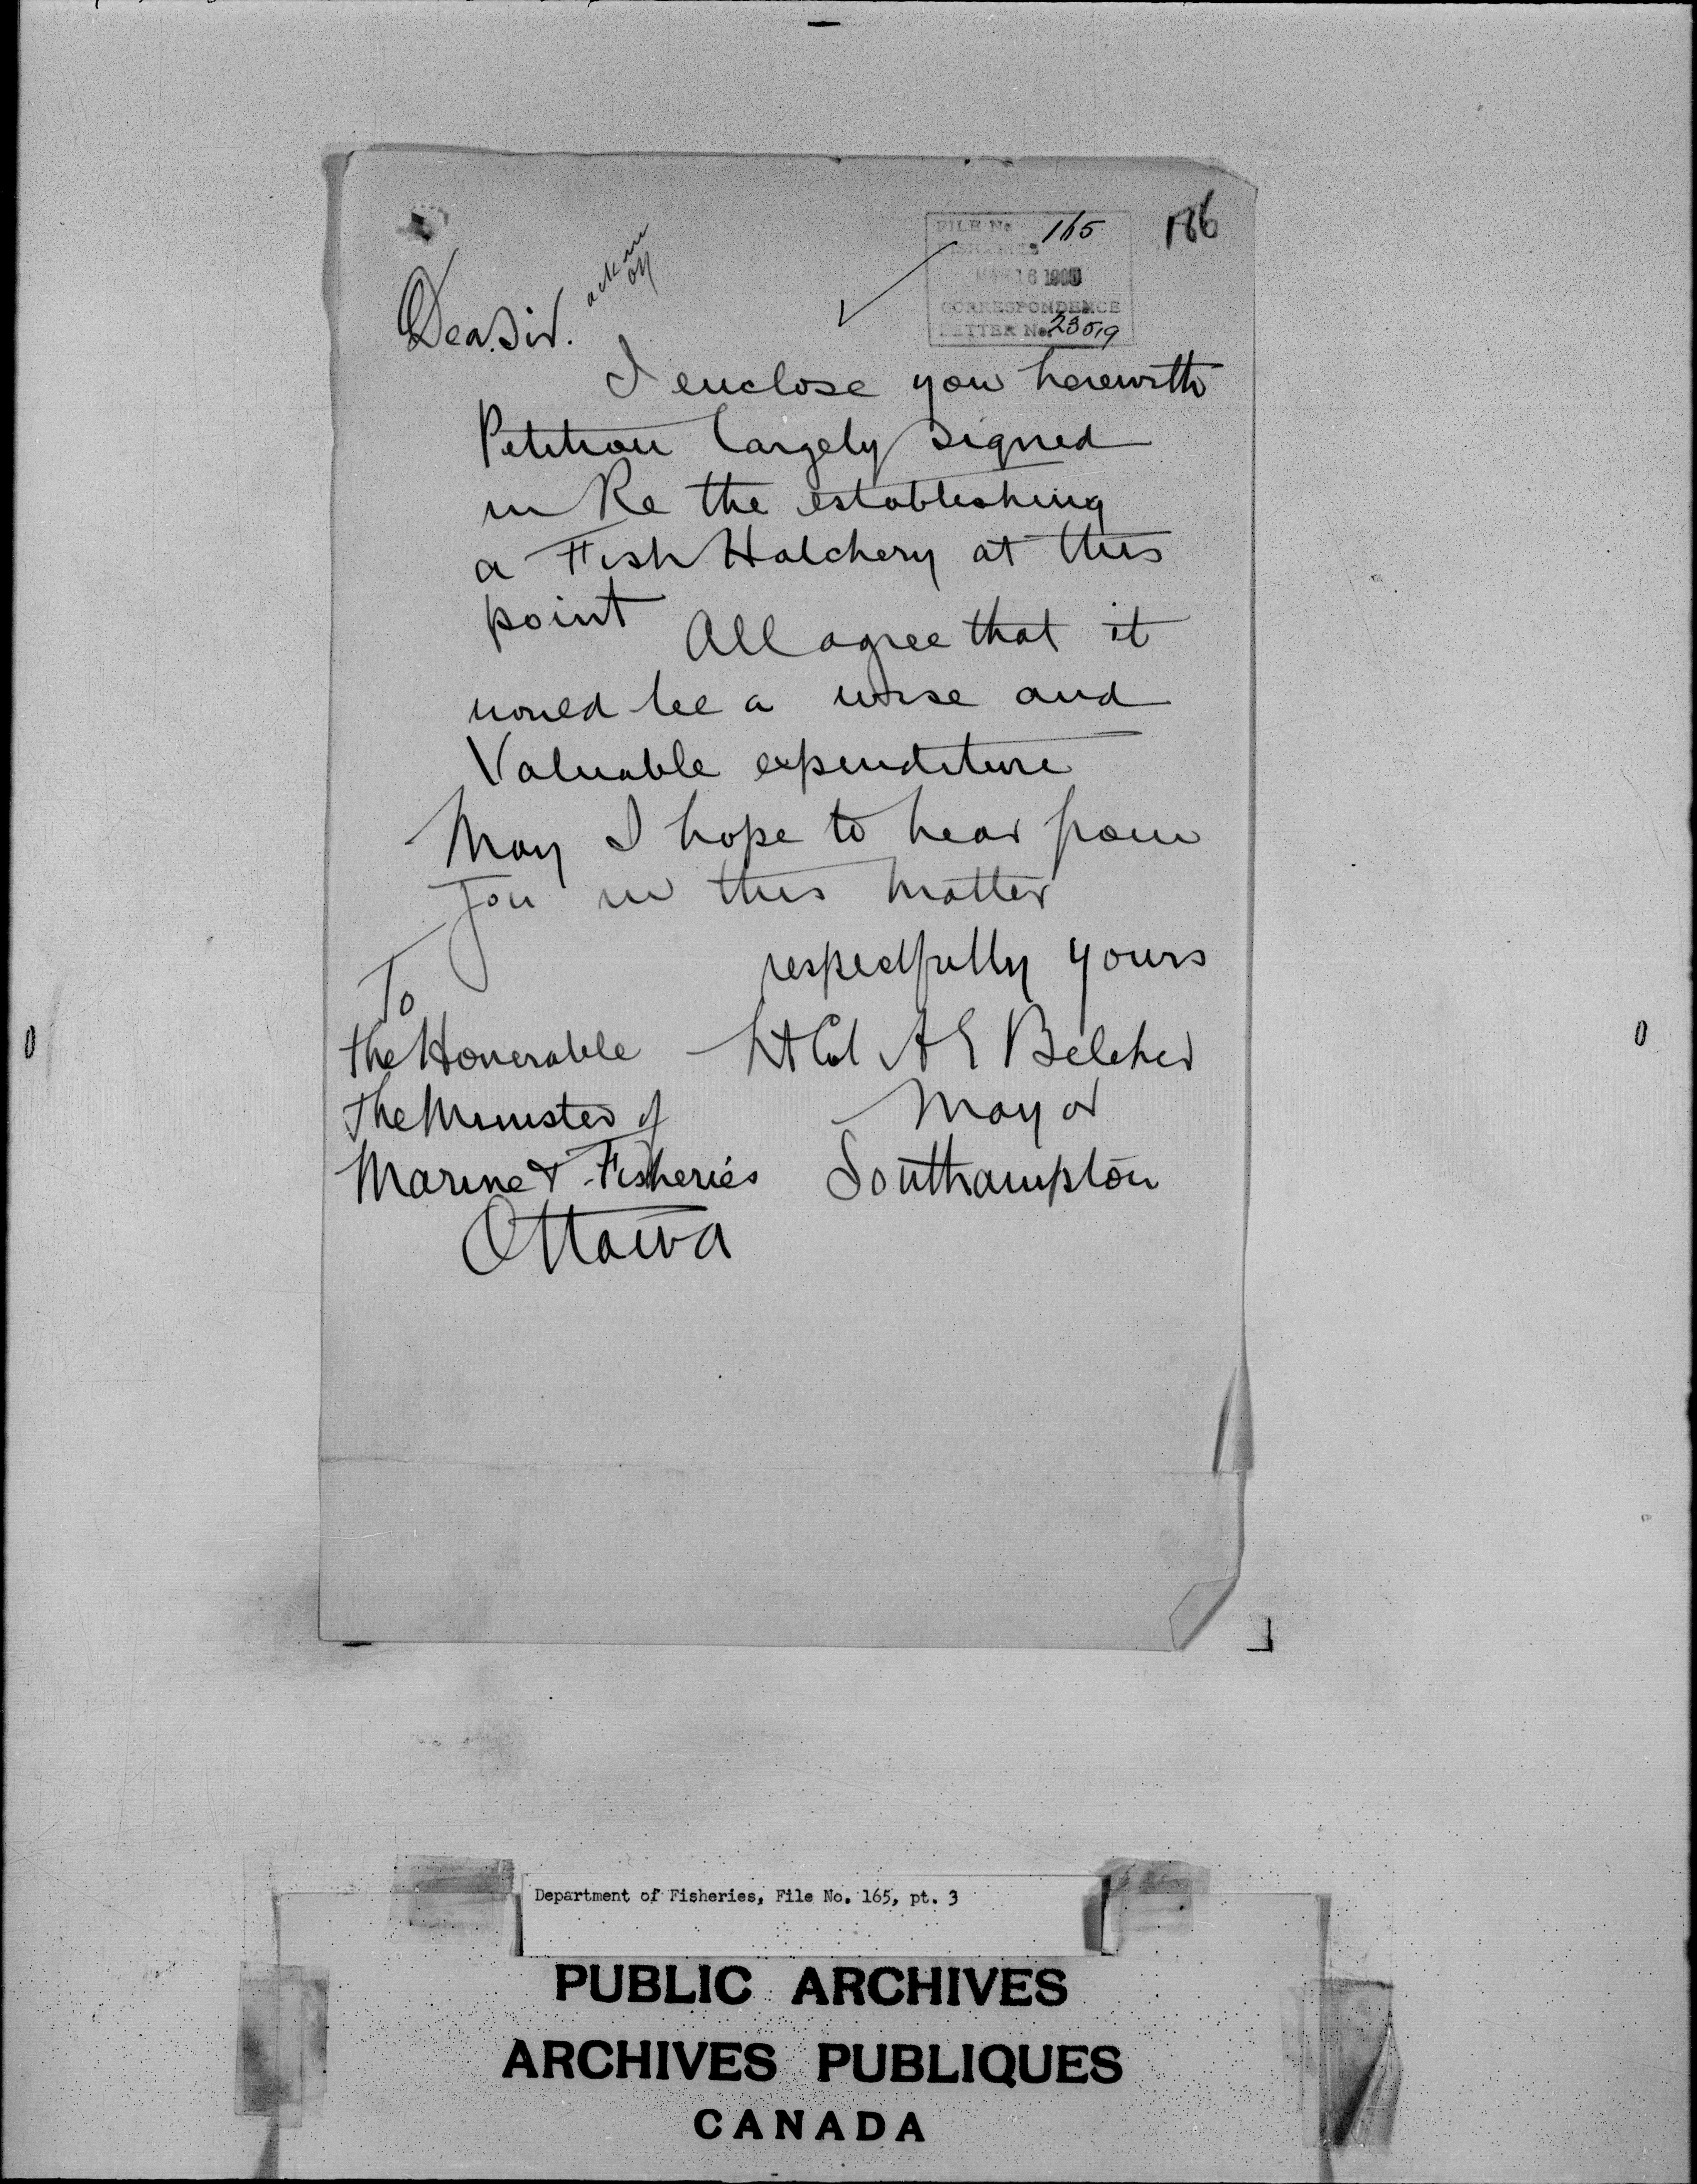 186
FILE No 165
FISHERIES
16
CORRESPONDENCE
LETTER No. 23519
Dear Sir.
I enclose you herewith
Petition largely signed
in Re the establishing
a Fish Hatchery at this
point All agree that it
would be a wise and
Valuable expenditure
May I hope to hear from
you in this matter
respectfully yours
To
the Honerable
Lt Col A E Belcher
The Minister of
Mayor
Marine & Fisheries
Southampton
Ottawa
Department of Fisheries, File No. 165, pt. 3
PUBLIC ARCHIVES
ARCHIVES PUBLIQUES
CANADA